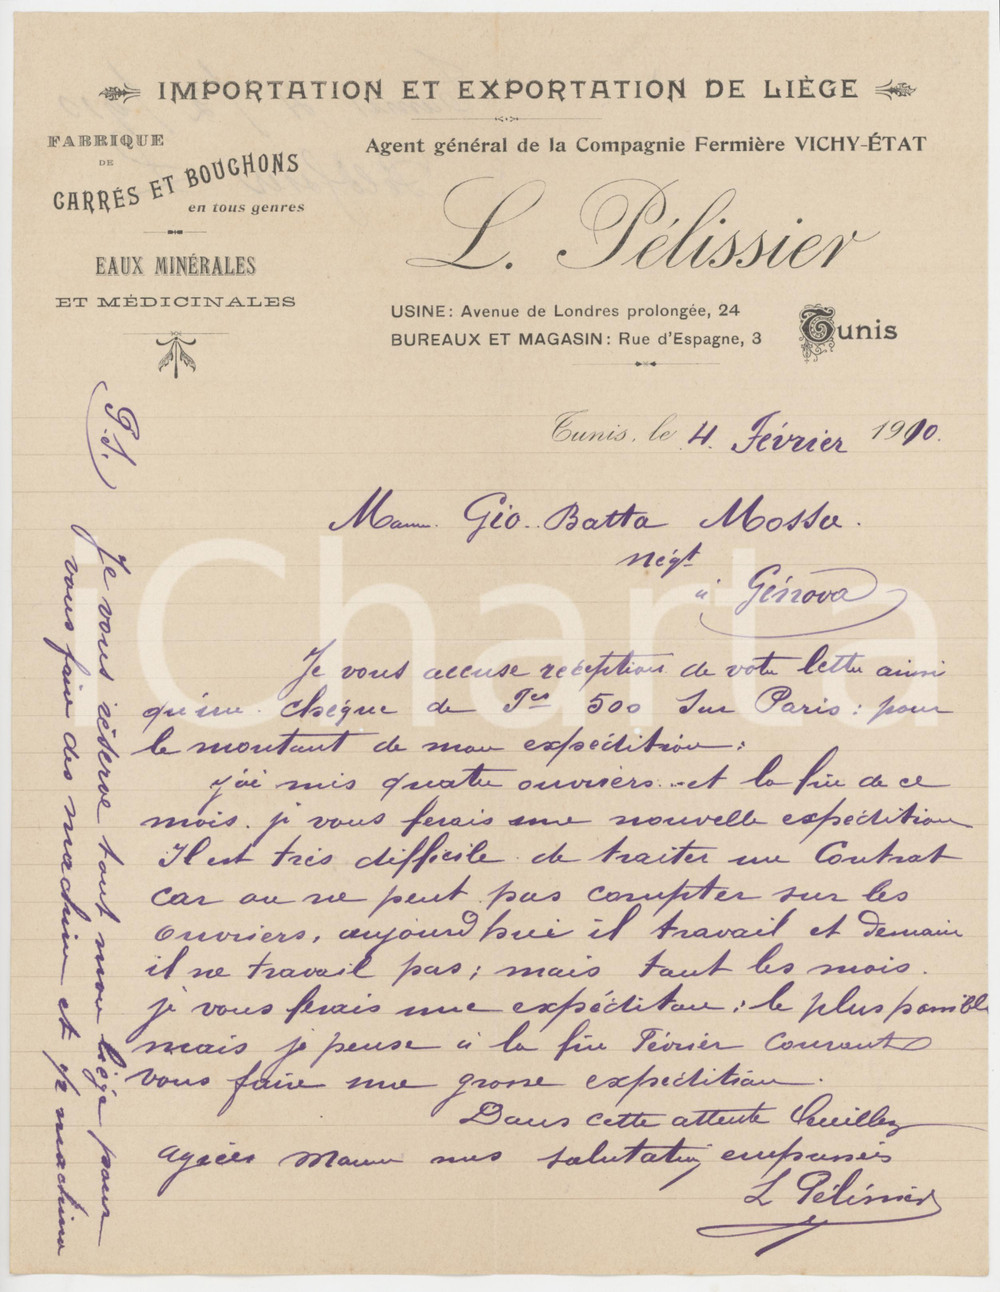 IMPORTATION ET EXPORTATION DE LIÈGE
FABRIQUE
DE
CARRÉS ET BOUCHONS
en tous genres
EAUX MINÉRALES
ET MÉDICINALES
Agent général de la Compagnie Fermière VICHY-ÉTAT
L. Pélissier
USINE: Avenue de Londres prolongée, 24
BUREAUX ET MAGASIN: Rue d'Espagne, 3
Tunis
Tunis, le 4 Février 1910.
Gio. Batta Mossa.
Négt
à Génova
Je vous accuse réception de votre lettre ainsi
qu'un chèque de Frs 500 sur Paris: pour
le montant de mon expédition:
j'ai mis quatre ouvriers et la fin de ce
mois je vous ferais une nouvelle expédition
Il est très difficile de traiter un Contrat
car on ne peut pas compter sur les
Ouvriers, aujourd'hui il travail et demain
il ne travail pas; mais tout les mois.
je vous ferais une expédition: le plus possible
mais je pense à la fin Février Courant
vous faire une grosse expédition.
Dans cette attente Veuillez
agréer mes salutations empressées
L Pélissier
P.S.
Je vous réserve tout mon liège pour
vous faire des machine et je machine
iCharta